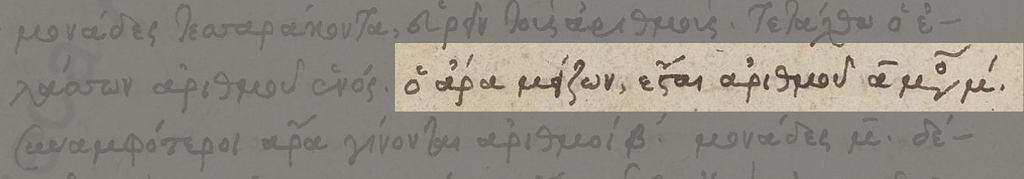 μονάδες τεσσαράκοντα, εἰσὶν τοῖς ἀριθμοῖς. Τετάχθω ὁ ἐ-
λάσσων ἀριθμοῦ ἑνός. ὁ ἄρα μείζων, ἔσται ἀριθμοῦ ᾱ μο μ̄.
Συναμφότεροι ἄρα γίνονται ἀριθμοί β̄. μονάδες μ̄. δέ-